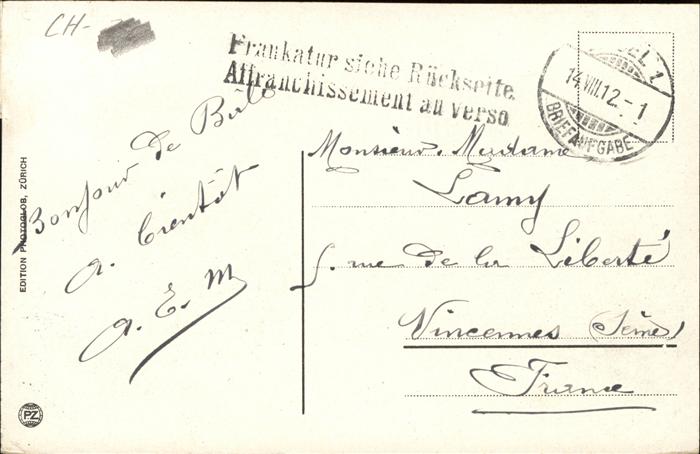 CH-
Frankatur siehe Rückseite
Affranchissement au verso
BASEL 1
14.VIII.12.-1
BRIEFAUFGABE
Bonjour de Bâle
A bientôt
A. E. M
Monsieur. Madame
Lamy
5. rue de la Liberté
Vincennes (Seine)
France
EDITION PHOTOGLOB, ZÜRICH
PZ